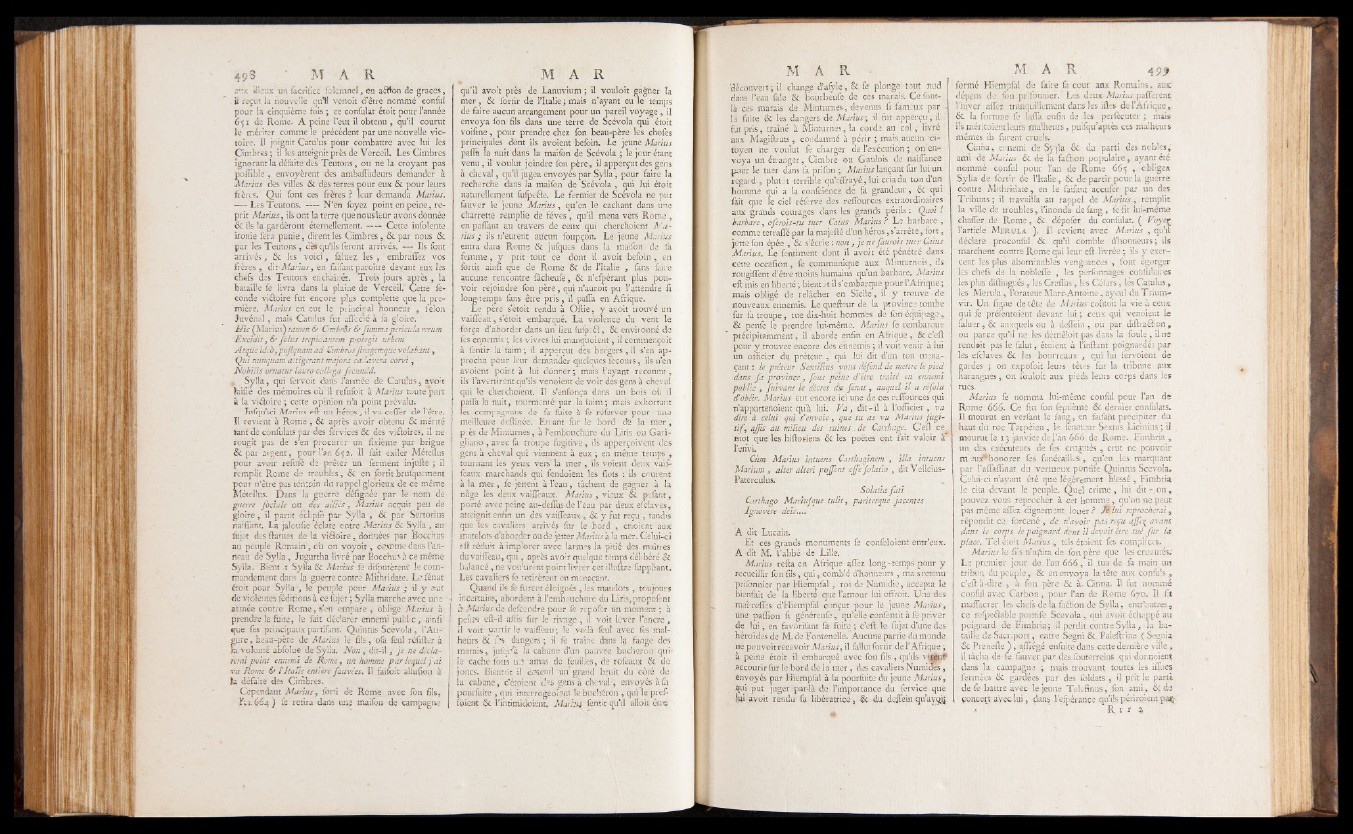 498 M A R
aux dieux un sacrifice solemnel, en action de graces,
il reçut la nouvelle qu'il venoit d'être nommé consul
pour la cinquième fois ; ce consulat étoit pour l'année
651 de Rome. A peine l'eut il obtenu, qu'il courut
le mériter comme le précédent par une nouvelle vic-
toire. Il joignit Catulus pour combattre avec lui les
Cimbres ; il les atteignit près de Verceil. Les Cimbres
ignorant la défaite des Teutons, ou ne la croyant pas
possible, envoyèrent des ambassadeurs demander à
Marius des villes & des terres pour eux & pour leurs
frères. Qui sont ces frères ? leur demanda Marius.
— Les Teutons. — N'en soyez point en peine, re-
prit Marius, ils ont la terre que nous leur avons donnée
& ils la garderont éternellement. — Cette insolente
ironie sera punie, dirent les Cimbres, & par nous &
par les Teutons, dès qu'ils seront arrivés. — Ils sont
arrivés, & les voici, saluez les, embrassez vos
frères, dit Marius, en faisant paroître devant eux les
chefs des Teutons enchaînés. Trois jours après, la
bataille se livra dans la plaine de Verceil. Cette se-
conde victoire fut encore plus complette que la pre-
mière. Marius en eut le principal honneur, selon
Juvénal, mais Catulus fut associé à sa gloire.
Hic (Marius) tamen & Cimbros & summa pericula rerum
Excidit, & solus trepidantem protegit urbem
Atque ideò, postquam ad Cimbros stragemque volabant,
Qui nunquam attigerant majora cadavera corvi,
Nobilis ornatur lauro collega secundâ.
Sylla, qui servoit dans l'armée de Catulus, avoit
laissé des mémoires où il refusoit à Marius toute part
à la victoire ; cette opinion n'a point prévalu.
Jusqu'ici Marius est un héros, il va cesser de l'être.
Il revient à Rome, & après avoir obtenu & mérité
tant de consulats par des services & des victoires, il ne
rougit pas de s'en procurer un sixième par brigue
& par argent, pour l'an 652. Il fait exiler Métellus
pour avoir refusé de prêter un serment injuste ; il
remplit Rome de troubles, & en sortit brusquement
pour n'être pas témoin du rappel glorieux de ce même
Métellus. Dans la guerre désignée par le nom de
guerre sociale ou des alliés, Marius acquit peu de
gloire, il parut éclipsé par Sylla, & par Sertorius
naissant. La jalousie éclate entre Marius & Sylla, au
sujet des statues de la victoire, données par Bocchus
au peuple Romain, où on voyoit, comme dans l'an-
neau de Sylla, Jugurtha livré par Bocchus à ce même
Sylla. Bientôt Sylla & Marius se disputèrent le com-
mandement dans la guerre contre Mithridate. Le sénat
étoit pour Sylla, le peuple pour Marius ; il y eut
de violentes séditions à ce sujet ; Sylla marche avec une
armée contre Rome, s'en empare, oblige Marius à
prendre la fuite, le fait déclarer ennemi public, ainsi
que ses principaux partisans. Quintus Scevola, l'Au-
gure, beau-père de Marius le fils, osa seul résister à
la volonté absolue de Sylla. Non, dit-il, je ne décla-
rerai point ennemi de Rome, un homme par lequel j'ai
vu Rome & l'Italie entière sauvées. Il faisoit allusion à
la défaite des Cimbres.
Cependant Marius, sorti de Rome avec son fils,
l'an 664) se retira dans une maison de campagne
M A R
qu'il avoit près de Lanuvium ; il vouloit gagner la
mer, & sortir de l'Italie ; mais n'ayant eu le temps
de faire aucun arrangement pour un pareil voyage, il
envoya son fils dans une terre de Scévola qui étoit
voisine, pour prendre chez son beau-père les choses
principales dont ils avoient besoin. Le jeune Marius
passa la nuit dans la maison de Scévola ; le jour étant
venu, il voulut joindre son père, il apperçut des gens
à cheval, qu'il jugea envoyés par Sylla, pour faire la
recherche dans la maison de Scévola, qui lui étoit
naturellement suspecte. Le fermier de Scevola ne put
sauver le jeune Marius, qu'en le cachant dans une
charrette remplie de fèves, qu'il mena vers Rome,
en passant au travers de ceux qui cherchoient Ma-
rius ; ils n'eurent aucun soupçon. Le jeune Marius
entra dans Rome & jusques dans la maison de sa
femme, y prit tout ce dont il avoit besoin, en
sortit ainsi que de Rome & de l'Italie, sans faire
aucune rencontre fâcheuse, & n'espérant plus pou-
voir rejoindre son père, qui n'auroit pu l'attendre si
long-temps sans être pris, il passa en Afrique.
Le père s'étoit rendu à Ostie, y avoit trouvé un
vaisseau, s'étoit embarqué. La violence du vent le
força d'aborder dans un lieu suspect, & environné de
ses ennemis ; les vivres lui manquoient, il commençoit
à sentir la faim ; il apperçut des bergers, il s'en ap-
procha pour leur demander quelques secours, ils n'en
avoient point à lui donner ; mais l'ayant reconnu,
ils l'avertirent qu'ils venoient de voir des gens à cheval
qui le cherchoient. Il s'enfonça dans un bois où il
passa la nuit, tourmenté par la faim ; mais exhortant
les compagnons de sa fuite à se réserver pour une
meilleure destinée. Errant sur le bord de la mer,
près de Minturnes, à l'embouchure du Liris ou Gari-
gliano, avec sa troupe fugitive, ils apperçoivent des
gens à cheval qui viennent à eux ; en même temps,
tournant les yeux vers la mer, ils voient deux vais-
seaux marchands qui fendoient les flots : ils courent
à la mer, se jettent à l'eau, tâchent de gagner à la
nâge les deux vaisseaux. Marius, vieux & pesant,
porté avec peine au-dessus de l'eau par deux esclaves,
atteignit enfin un des vaisseaux, & y fut reçu, tandis
que les cavaliers arrivés sur le bord, crioient aux
matelots d'aborder ou de jetter Marius à la mer. Celui-ci
est réduit à implorer avec larmes la pitié des maîtres
du vaisseau, qui, après avoir quelque temps délibéré &
balancé, ne voulurent point livrer cet illustre suppliant.
Les cavaliers se retirèrent en menaçant.
Quand ils se furent éloignés, les matelots, toujours
incertains, abordent à l'embouchure du Liris, proposent
à Marius de descendre pour se reposer un moment ; à
peine est-il assis sur le rivage, il voit lever l'ancre,
il voit partir le vaisseau ; le voilà seul avec ses mal-
heurs & ses dangers ; il se traîne dans la fange des
marais, jusqu'à la cabane d'un pauvre bucheron qui
le cache sous un amas de feuilles, de roseaux & de
joncs. Bientôt il entend un grand bruit du côté de
la cabane, c'étoient des gens à cheval, envoyés à sa
poursuite, qui interrogeoient le bucheron, qui le pres-
soient & l'intimidoient. Marius sentit qu'il alloit être
M A R
découvert ; il change d'asyle, & se plonge tout nud
dans l'eau sale & bourbeuse de ces marais. Ce sont-
là ces marais de Minturnes, devenus si fameux par
la fuite & les dangers de Marius ; il fut apperçu, il
fut pris, traîné à Minturnes, la corde au col, livré
aux Magistrats, condamné à périr ; mais aucun ci-
toyen ne voulut se charger de l'exécution ; on en-
voya un étranger, Cimbre ou Gaulois de naissance
pour le tuer dans sa prison ; Marius lançant sur lui un
regard, plutôt terrible qu'effrayé, lui cria du ton d'un
homme qui a la conscience de sa grandeur, & qui
sait que le ciel réserve des ressources extraordinaires
aux grands courages dans les grands périls : Quoi !
barbare, oserois-tu tuer Caius Marius ? Le barbare,
comme terrassé par la majesté d'un héros, s'arrête, sort,
jette son épée, & s'écrie : non, je ne saurois tuer Caius
Marius. Le sentiment dont il avoit été pénétré dans
cette occasion, se communique aux Minturnois, ils
rougissent d'être moins humains qu'un barbare, Marius
est mis en liberté ; bientôt il s'embarque pour l'Afrique ;
mais obligé de relâcher en Sicile, il y trouve de
nouveaux ennemis. Le questeur de la province tombe
sur sa troupe, tue dix-huit hommes de son équipage,
& pense le prendre lui-même. Marius se rembarque
précipitamment, il aborde enfin en Afrique, & c'est
pour y trouver encore des ennemis ; il voit venir à lui
un officier du préteur, qui lui dit d'un ton mena-
çant : le préteur Sextilius vous défend de mettre le pied
dans sa province, sous peine d'être traité en ennemi
public, suivant le décret du sénat, auquel il a résolu
d'obéir. Marius eut encore ici une de ces ressources qui
n'appartenoient qu'à lui. Va, dit-il à l'officier, va
dire à celui qui t'envoie, que tu as vu Marius fugi-
tif, assis au milieu des ruines de Carthage. C'est ce
mot que les historiens & les poètes ont fait valoir à
l'envi.
Cùm Marius intuens Carthaginem, illa intuens
Marium, alter alteri possent esse solatio, dit Velleius-
Paterculus.
Solatia fati
Carthago Mariusque tulit, pariterque jacentes
Ignovere deis....
A dit Lucain.
Et ces grands monuments se consoloient entr'eux.
A dit M. l'abbé de Lille.
Marius resta en Afrique assez long-temps pour y
recueillir son fils, qui, comblé d'honneurs, mais retenu
prisonnier par Hiempsal, roi de Numidie, accepta le
bienfait de la liberté que l'amour lui offroit. Une des
maîtresses d'Hiempsal conçut pour le jeune Marius,
une passion si généreuse, qu'elle consentit à se priver
de lui, en favorisant sa fuite ; c'est le sujet d'une des
héroïdes de M. de Fontenelle. Aucune partie du monde
ne pouvoit recevoir Marius, il fallut sortir de l'Afrique ;
à peine étoit il embarqué avec son fils, qu'ils virent
accourir sur le bord de la mer, des cavaliers Numides,
envoyés par Hiempsal à la poursuite du jeune Marius,
qui put juger par-là de l'importance du service que
lui avoit rendu sa libératrice, & du dessein qu'avoit
M A R 499
formé Hiempsal de faire sa cour aux Romains, aux
dépens de son prisonnier. Les deux Marius passèrent
l'hyver assez tranquillement dans les isles de l'Afrique,
& la fortune se lassa enfin de les persécuter ; mais
ils méritoient leurs malheurs, puisqu'après ces malheurs
mêmes ils furent cruels.
Cinna, ennemi de Sylla & du parti des nobles,
ami de Marius & de la faction populaire, ayant été
nommé consul pour l'an de Rome 665, obligea
Sylla de sortir de l'Italie, & de partir pour la guerre
contre Mithridate, en le faisant accuser par un des
Tribuns ; il travailla au rappel de Marius, remplit
la ville de troubles, l'inonda de sang, se fit lui-même
chasser de Rome, & déposer du consulat. (Voyez
l'article MERULA). Il revient avec Marius, qu'il
déclare proconsul & qu'il comble d'honneurs ; ils
marchent contre Rome qui leur est livrée ; ils y exer-
cent les plus abominables vengeances, font égorger
les chefs de la noblesse, les personnages consulaires
les plus distingués, les Crassus, les Césars, les Catulus,
les Merula, l'orateur Marc-Antoine, ayeul du Trium-
vir. Un signe de tête de Marius coûtoit la vie à ceux
qui se présentoient devant lui ; ceux qui venoient le
saluer, & auxquels ou à dessein, ou par distraction,
ou parce qu'il ne les démêloit pas dans la foule, il ne
rendoit pas le salut, étoient à l'instant poignardés par
les esclaves & les bourreaux, qui lui servoient de
gardes ; on exposoit leurs têtes sur la tribune aux
harangues, on fouloit aux pieds leurs corps dans les
rues.
Marius se nomma lui-même consul pour l'an de
Rome 666. Ce fut son septième & dernier consulats.
Il mourut en versant le sang, en faisant précipiter du
haut du roc Tarpéien, le sénateur Sextus Licinius ; il
mourut le 13 janvier de l'an 666 de Rome. Fimbria,
un des exécuteurs de ses cruautés, crut ne pouvoir
mieux honorer ses funérailles, qu'en les marquant
par l'assassinat du vertueux pontife Quintus Scevola.
Celui-ci n'ayant été que légèrement blessé, Fimbria
le cita devant le peuple. Quel crime, lui dit-on,
pouvez vous reprocher à cet homme, qu'on ne peut
pas même assez dignement louer ? Je lui reprocherai,
répondit ce forcené, de n'avoir pas reçu assez avant
dans le corps le poignard dont il devoit être tué sur la
place. Tel étoit Marius, tels étoient ses complices.
Marius le fils n'hérita de son père que les cruautés.
Le premier jour de l'an 666, il tua de sa main un
tribun du peuple, & en envoya la tête aux consuls,
c'est-à-dire, à son père & à Cinna. Il fut nommé
consul avec Carbon, pour l'an de Rome 670. Il fit
massacrer les chefs de la faction de Sylla, entr'autres,
ce respectable pontife Scevola, qui avoit échappé au
poignard de Fimbria ; il perdit contre Sylla, la ba-
taille de Sacriport, entre Segni & Palestrine (Segnia
& Preneste), assiégé ensuite dans cette dernière ville,
il tâcha de se sauver par des souterreins qui donnoient
dans la campagne ; mais trouvant toutes les issues
fermées & gardées par des soldats, il prit le parti
de se battre avec le jeune Telesinus, son ami, & de
concert avec lui, dans l'espérance qu'ils périroient par
R r r 2